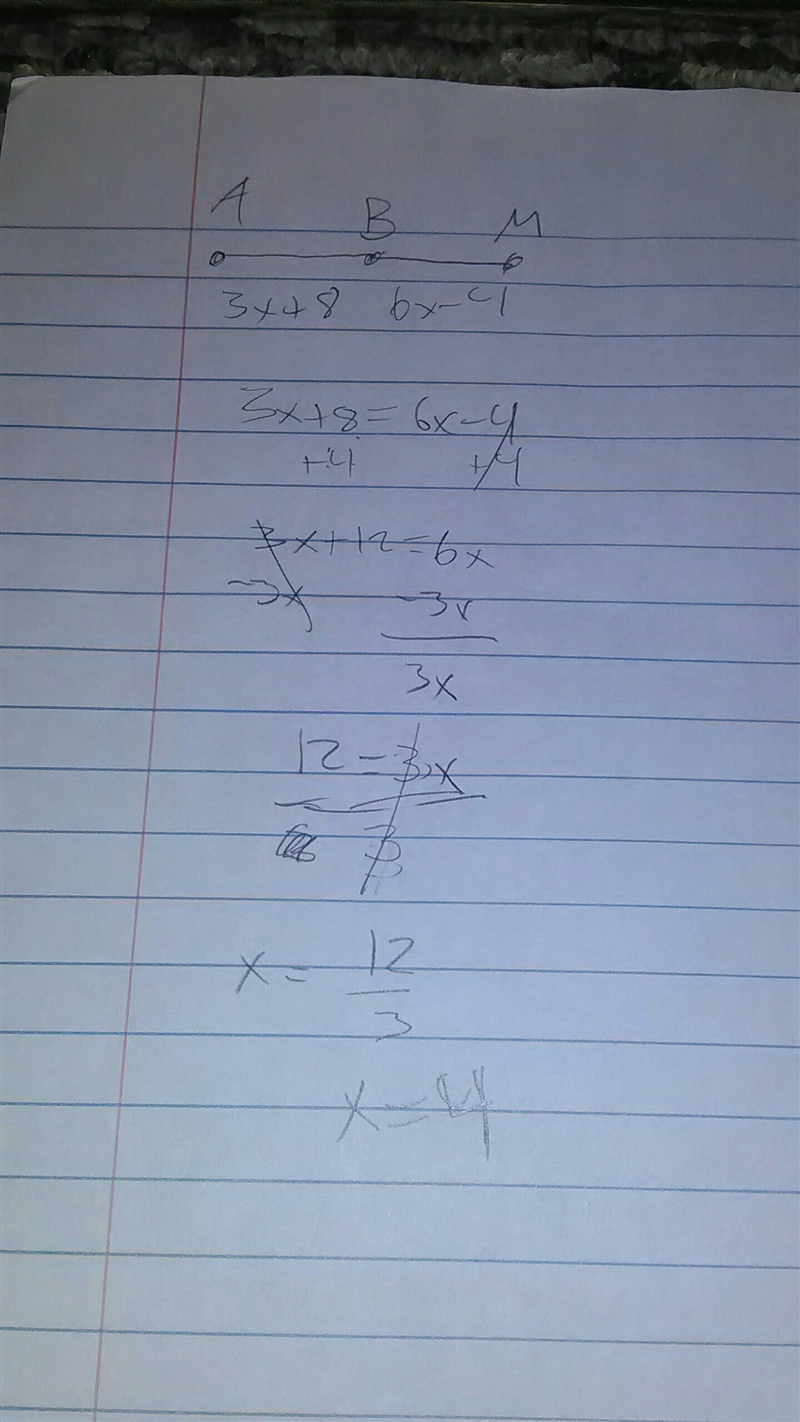 A B M
3x+8 6x-4
3x+8=6x-4
+4 +4
3x+12=6x
-3x -3x
3x
12=3x
3
x= 12
3
x=4